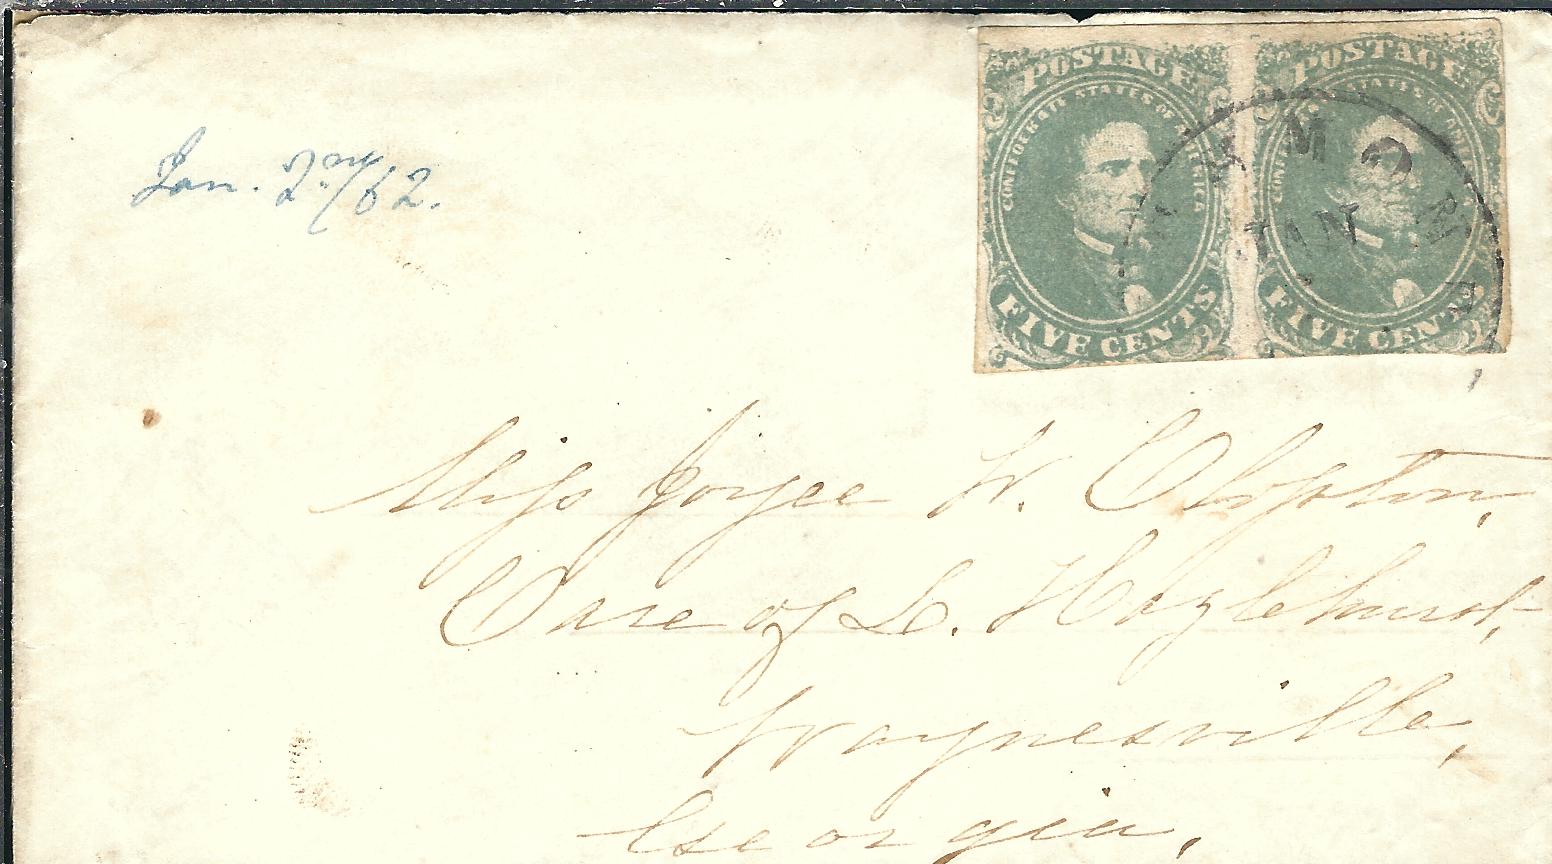 POSTAGE POSTAGE
CONFEDERATE STATES OF AMERICA CONFEDERATE STATES OF AMERICA
JAN
FIVE CENTS FIVE CENTS
Jan. 2nd/62.
Miss Joycee W. Clopton,
Care of L. Hazlehurst,
Waynesville,
Georgia,